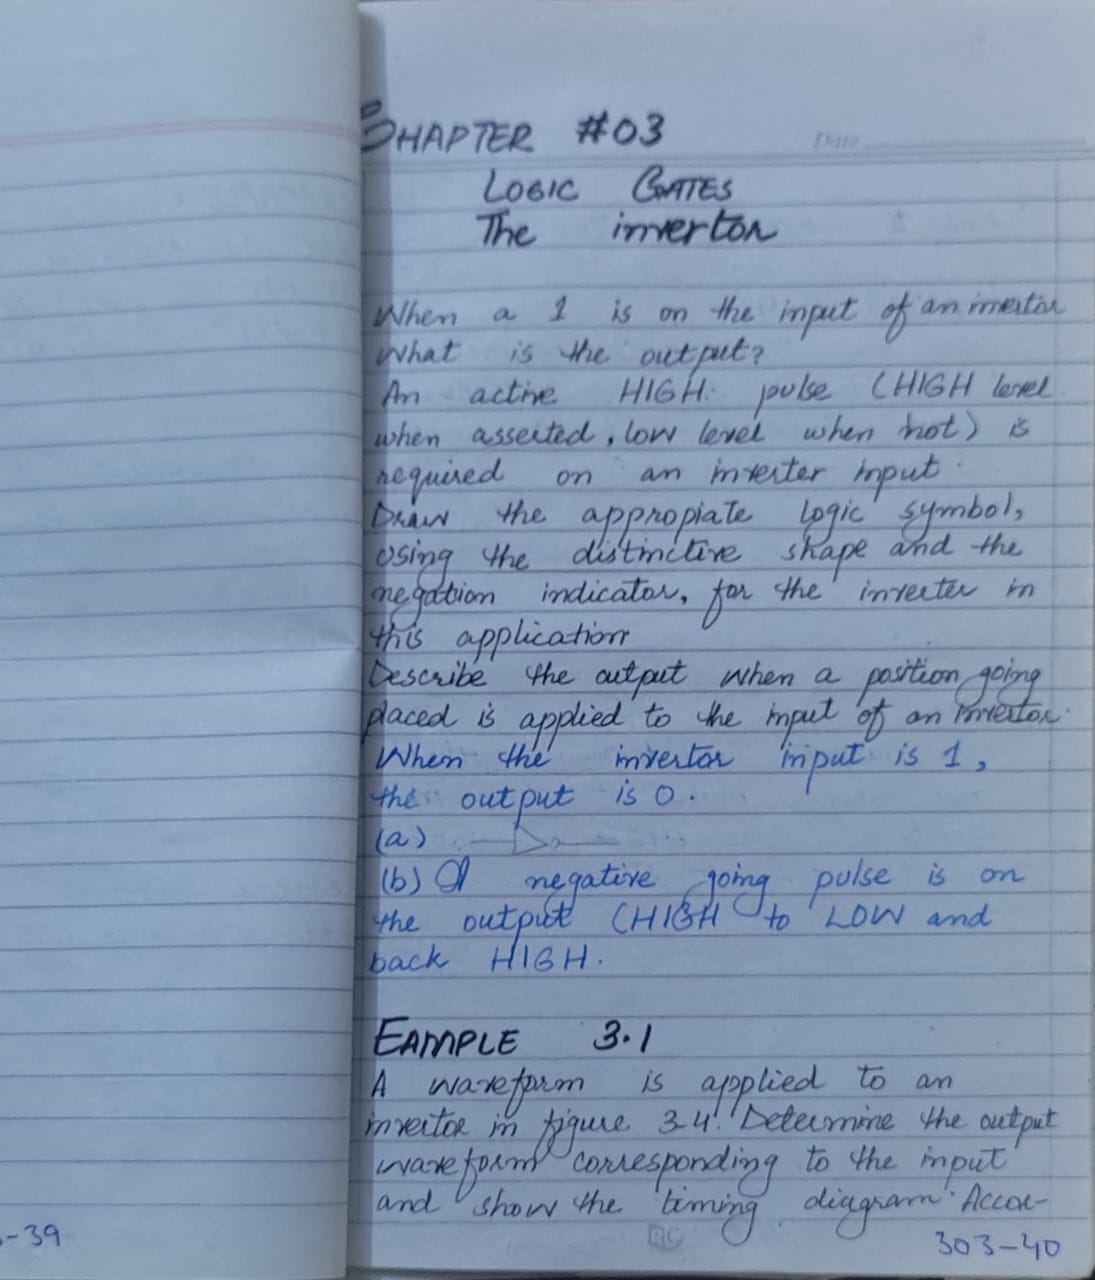 CHAPTER #03
Date
LOGIC GATES
The invertor
When a 1 is on the input of an invertor
What is the output?
An active HIGH pulse (HIGH level
when asserted, low level when not) is
required on an inverter input.
Draw the appropiate logic symbol,
using the distinctive shape and the
negation indicator, for the inverter in
this application
Describe the output when a position going
placed is applied to the input of an invertor.
When the invertor input is 1,
the output is 0.
(a)
(b) A negative going pulse is on
the output (HIGH to LOW and
back HIGH.
EAMPLE 3.1
A waveform is applied to an
invertor in figure 3-4. Determine the output
waveform corresponding to the input
and show the timing diagram. Accor-
-39
303-40